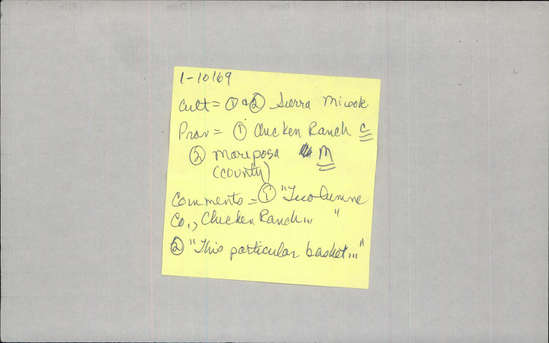 1-10169
Cult = ① & ② Sierra Miwok
Prov = ① Chicken Ranch C
② Mariposa M
(county)
Comments = ① "Tuolumne
Co., Chicken Ranch... "
② "This particular basket..."